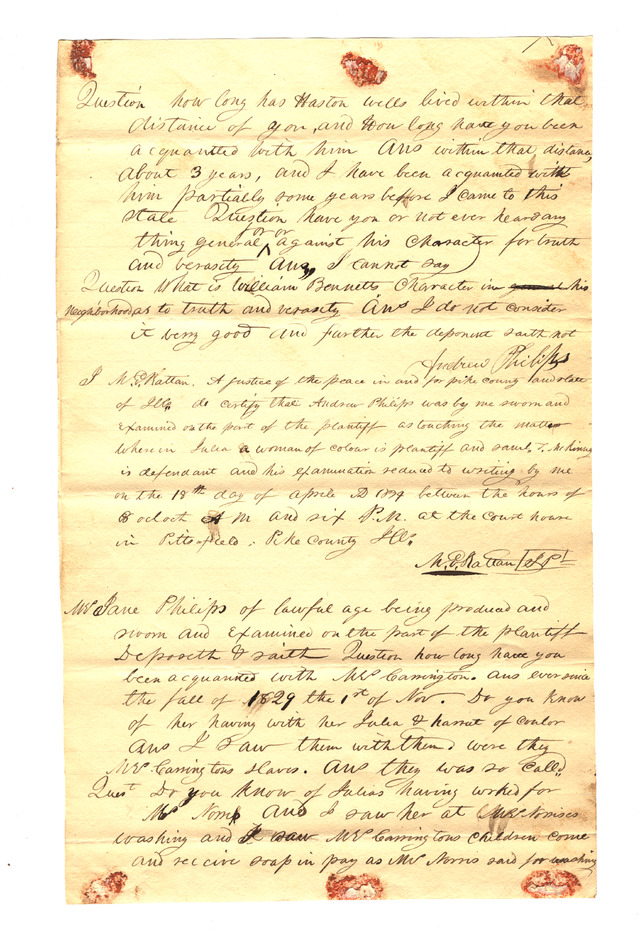 Question how long has Haston wells lived within that
distance of you, and How long have you been
acquanted with him Ans within that distance
about 3 years, and I have been acquanted with
him partially some years before I came to this
state Question have you or not ever heard any
thing general for or against his character for truth
and verasity Ans, I cannot say
Question What is William Bennetts Character in his
Neighborhood as to truth and verasity Ans I do not consider
it very good and further the deponent saith not
Andrew Philips
I M. E. Rattan. A justice of the peace in and for pike county and state
of Ills. do certify that Andrew Philips was by me sworn and
Examined on the part of the plantiff as touching the matter
wherein Julia a woman of colour is plantiff and saml. T. McKinney
is defendant and his examination reduced to writing by me
on the 18th day of Aprile AD 1834 between the hours of
8 oclock A M and six P.M. at the court house
in Pittsfield, Pike County Ills.
M. E. Rattan J P
Mrs Jane Philips of lawful age being produced and
sworn and Examined on the part of the plantiff
Deposeth & saith Question how long have you
been acquanted with Mrs Carrington. ans ever since
the fall of 1829 the 1st of Nov. Do you know
of her having with her Julia & harriet of coulor
ans I saw them with them were they
Mrs Carringtons slaves. Ans they was so Calld.
Quest Do you know of Julias having worked for
Mrs Norris Ans I saw her at Mrs Norrises
washing and I saw Mrs Carringtons children come
and receive soap in pay as Mrs Norris said for washing